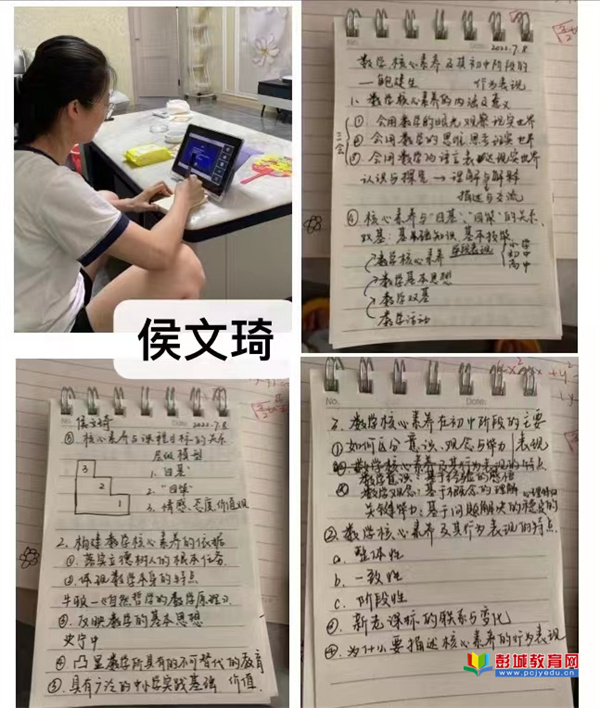 侯文琦
No.
Date.
2022.7.8
数学核心素养及其初中阶段的
——鲍建生 行为表现
1. 数学核心素养的内涵及意义
三会
① 会用数学的眼光观察现实世界
② 会用数学的思维思考现实世界
③ 会用数学的语言表达现实世界
认识与探究→理解与解释
描述与交流
④ 核心素养与"四基"、"四能"的关系
双基:基础知识、基本技能
数学核心素养
小学
初中
高中
数学基本思想
数学双基
数学活动
侯文琦
Date.
2022.7.8
⑤ 核心素养与课程目标的关系
层级模型
3
2
1
1. "四基"
2. "四能"
3. 情感、态度、价值观
2. 构建数学核心素养的依据
①. 落实立德树人的根本任务
②. 体现数学本身的特点
牛顿—《自然哲学的数学原理》
③. 反映数学的基本思想
史宁中
④ 凸显数学所具有的不可替代的教育
价值
⑤. 具有广泛的中小学实践基础
Date.
3. 数学核心素养在初中阶段的主要
表现
① 如何区分意识、观念与能力
数学核心素养及其行为表现的特点
数学意识:基于经验的感悟
数学观念:基于概念的理解
关键能力:基于问题解决的
② 数学核心素养及其行为表现的特点
a. 整体性
b. 一致性
c. 阶段性
③. 新老课标的联系与变化
④. 为什么要描述核心素养的行为表现
彭城教育网
www.pcjyedu.cn